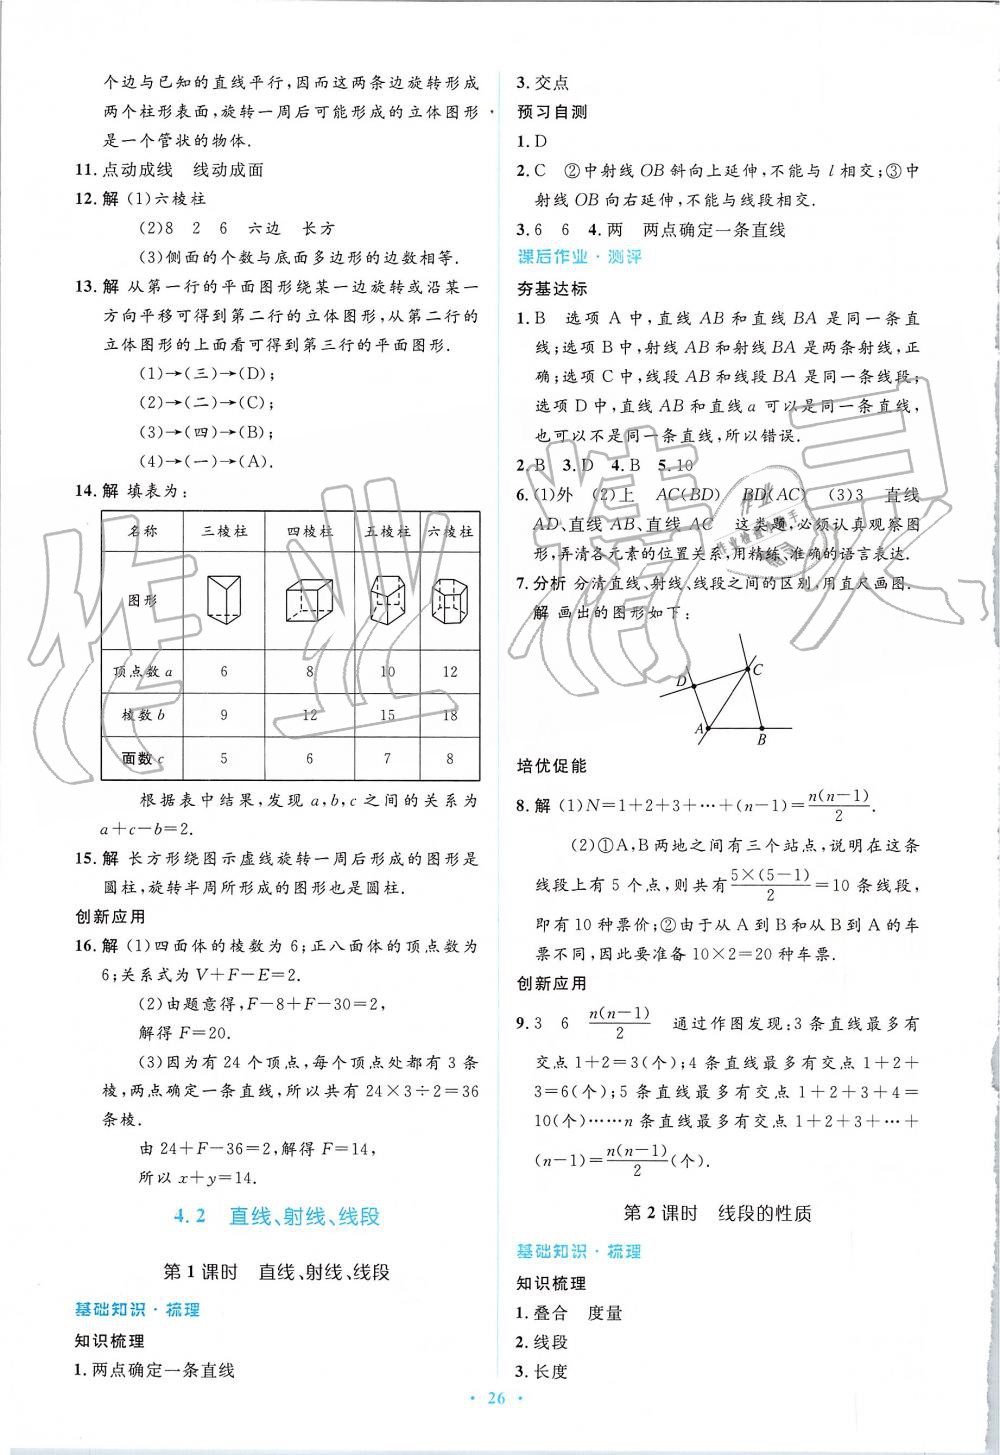 个边与已知的直线平行,因而这两条边旋转形成
两个柱形表面,旋转一周后可能形成的立体图形
是一个管状的物体.
11.点动成线　线动成面
12.解 (1)六棱柱
(2)8　2　6　六边　长方
(3)侧面的个数与底面多边形的边数相等.
13.解 从第一行的平面图形绕某一边旋转或沿某一
方向平移可得到第二行的立体图形,从第二行的
立体图形的上面看可得到第三行的平面图形.
(1)→(三)→(D);
(2)→(二)→(C);
(3)→(四)→(B);
(4)→(一)→(A).
14.解 填表为:
名称　三棱柱　四棱柱　五棱柱　六棱柱
图形
顶点数a　6　8　10　12
棱数b　9　12　15　18
面数c　5　6　7　8
根据表中结果,发现a,b,c之间的关系为
a+c−b=2.
15.解 长方形绕图示虚线旋转一周后形成的图形是
圆柱,旋转半周所形成的图形也是圆柱.
创新应用
16.解 (1)四面体的棱数为6;正八面体的顶点数为
6;关系式为V+F−E=2.
(2)由题意得,F−8+F−30=2,
解得F=20.
(3)因为有24个顶点,每个顶点处都有3条
棱,两点确定一条直线,所以共有24×3÷2=36
条棱.
由24+F−36=2,解得F=14,
所以x+y=14.
4.2　直线、射线、线段
第1课时　直线、射线、线段
基础知识·梳理
知识梳理
1.两点确定一条直线
3.交点
预习自测
1.D
2.C　②中射线OB斜向上延伸,不能与l相交;③中
射线OB向右延伸,不能与线段相交.
3.6　6　4.两　两点确定一条直线
课后作业·测评
夯基达标
1.B　选项A中,直线AB和直线BA是同一条直
线;选项B中,射线AB和射线BA是两条射线,正
确;选项C中,线段AB和线段BA是同一条线段;
选项D中,直线AB和直线a可以是同一条直线,
也可以不是同一条直线,所以错误.
2.B　3.D　4.B　5.10
6.(1)外　(2)上　AC(BD)　BD(AC)　(3)3　直线
AD、直线AB、直线AC　这类题,必须认真观察图
形,弄清各元素的位置关系,用精练、准确的语言表达.
7.分析 分清直线、射线、线段之间的区别,用直尺画图.
解 画出的图形如下:
D　C
A　B
培优促能
8.解 (1)N=1+2+3+…+(n−1)=n(n−1)/2.
(2)①A,B两地之间有三个站点,说明在这条
线段上有5个点,则共有5×(5−1)/2=10条线段,
即有10种票价;②由于从A到B和从B到A的车
票不同,因此要准备10×2=20种车票.
创新应用
9.3　6　n(n−1)/2　通过作图发现:3条直线最多有
交点1+2=3(个);4条直线最多有交点1+2+
3=6(个);5条直线最多有交点1+2+3+4=
10(个)……n条直线最多有交点1+2+3+…+
(n−1)=n(n−1)/2(个).
第2课时　线段的性质
基础知识·梳理
知识梳理
1.叠合　度量
2.线段
3.长度
· 26 ·
作业精灵